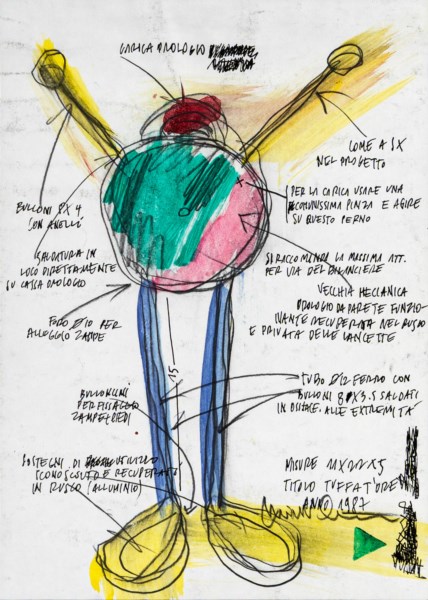 CARICA OROLOGIO
COME A SX
NEL PROGETTO
BULLONI 8X4
CON ANELLI
PER LA CARICA USARE UNA
PINZA E AGIRE
SU QUESTO PERNO
SALDATURA IN
LOCO DIRETTAMENTE
SU CASSA OROLOGIO
SI RACCOMANDA LA MASSIMA ATT.
PER VIA DEL BILANCIERE
VECCHIA MECCANICA
OROLOGIO DA PARETE FUNZIO-
NANTE RECUPERATA NEL RUSCO
E PRIVATA DELLE LANCETTE
FORO Ø10 PER
ALLOGGIO ZAMPE
15
TUBO Ø12 FERRO CON
BULLONI 8X3.5 SALDATI
IN ALLE ESTREMITÀ
BULLONCINI
PER FISSAGGIO
ZAMPE-PIEDI
SOSTEGNI DI UTILIZZO
SCONOSCIUTO E RECUPERATO
IN RUSCO (ALLUMINIO)
MISURE 11X22X5
TITOLO
ANNO 1987